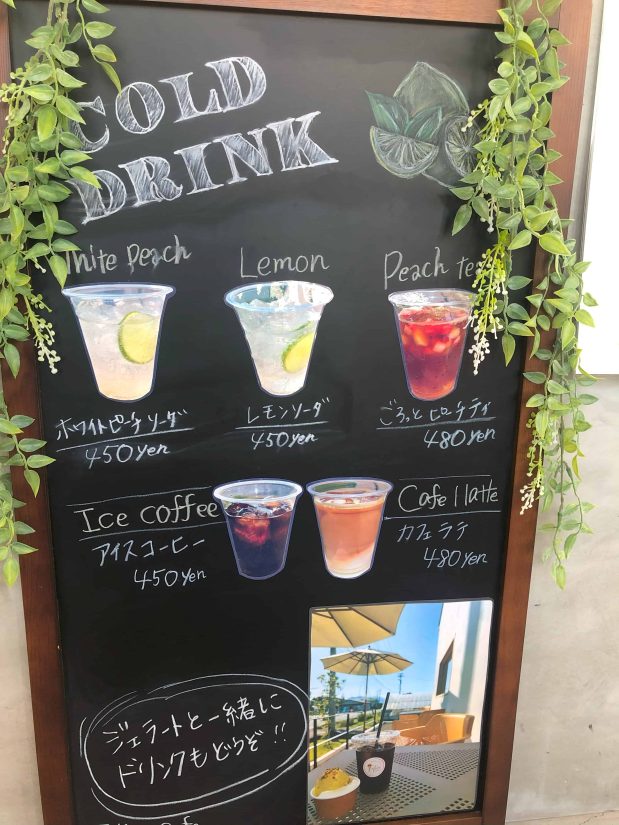 COLD
DRINK
White Peach
Lemon
Peach tea
ホワイトピーチソーダ
450yen
レモンソーダ
450yen
ごろっとピーチティ
480yen
Ice coffee
アイスコーヒー
450yen
Cafe latte
カフェラテ
480yen
ジェラートと一緒に
ドリンクもどうぞ!!